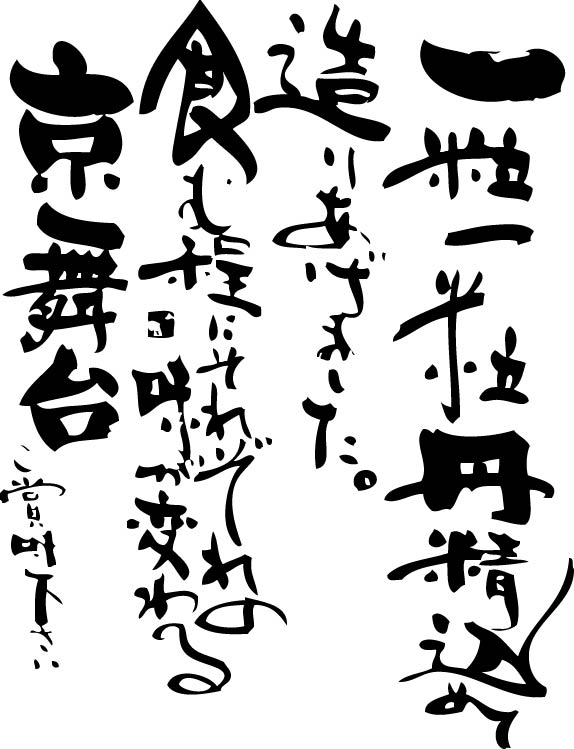 一粒一粒丹精込め
造りあげました。
食む程にそれぞれの
口味が変わる
京舞台
ご賞味下さい